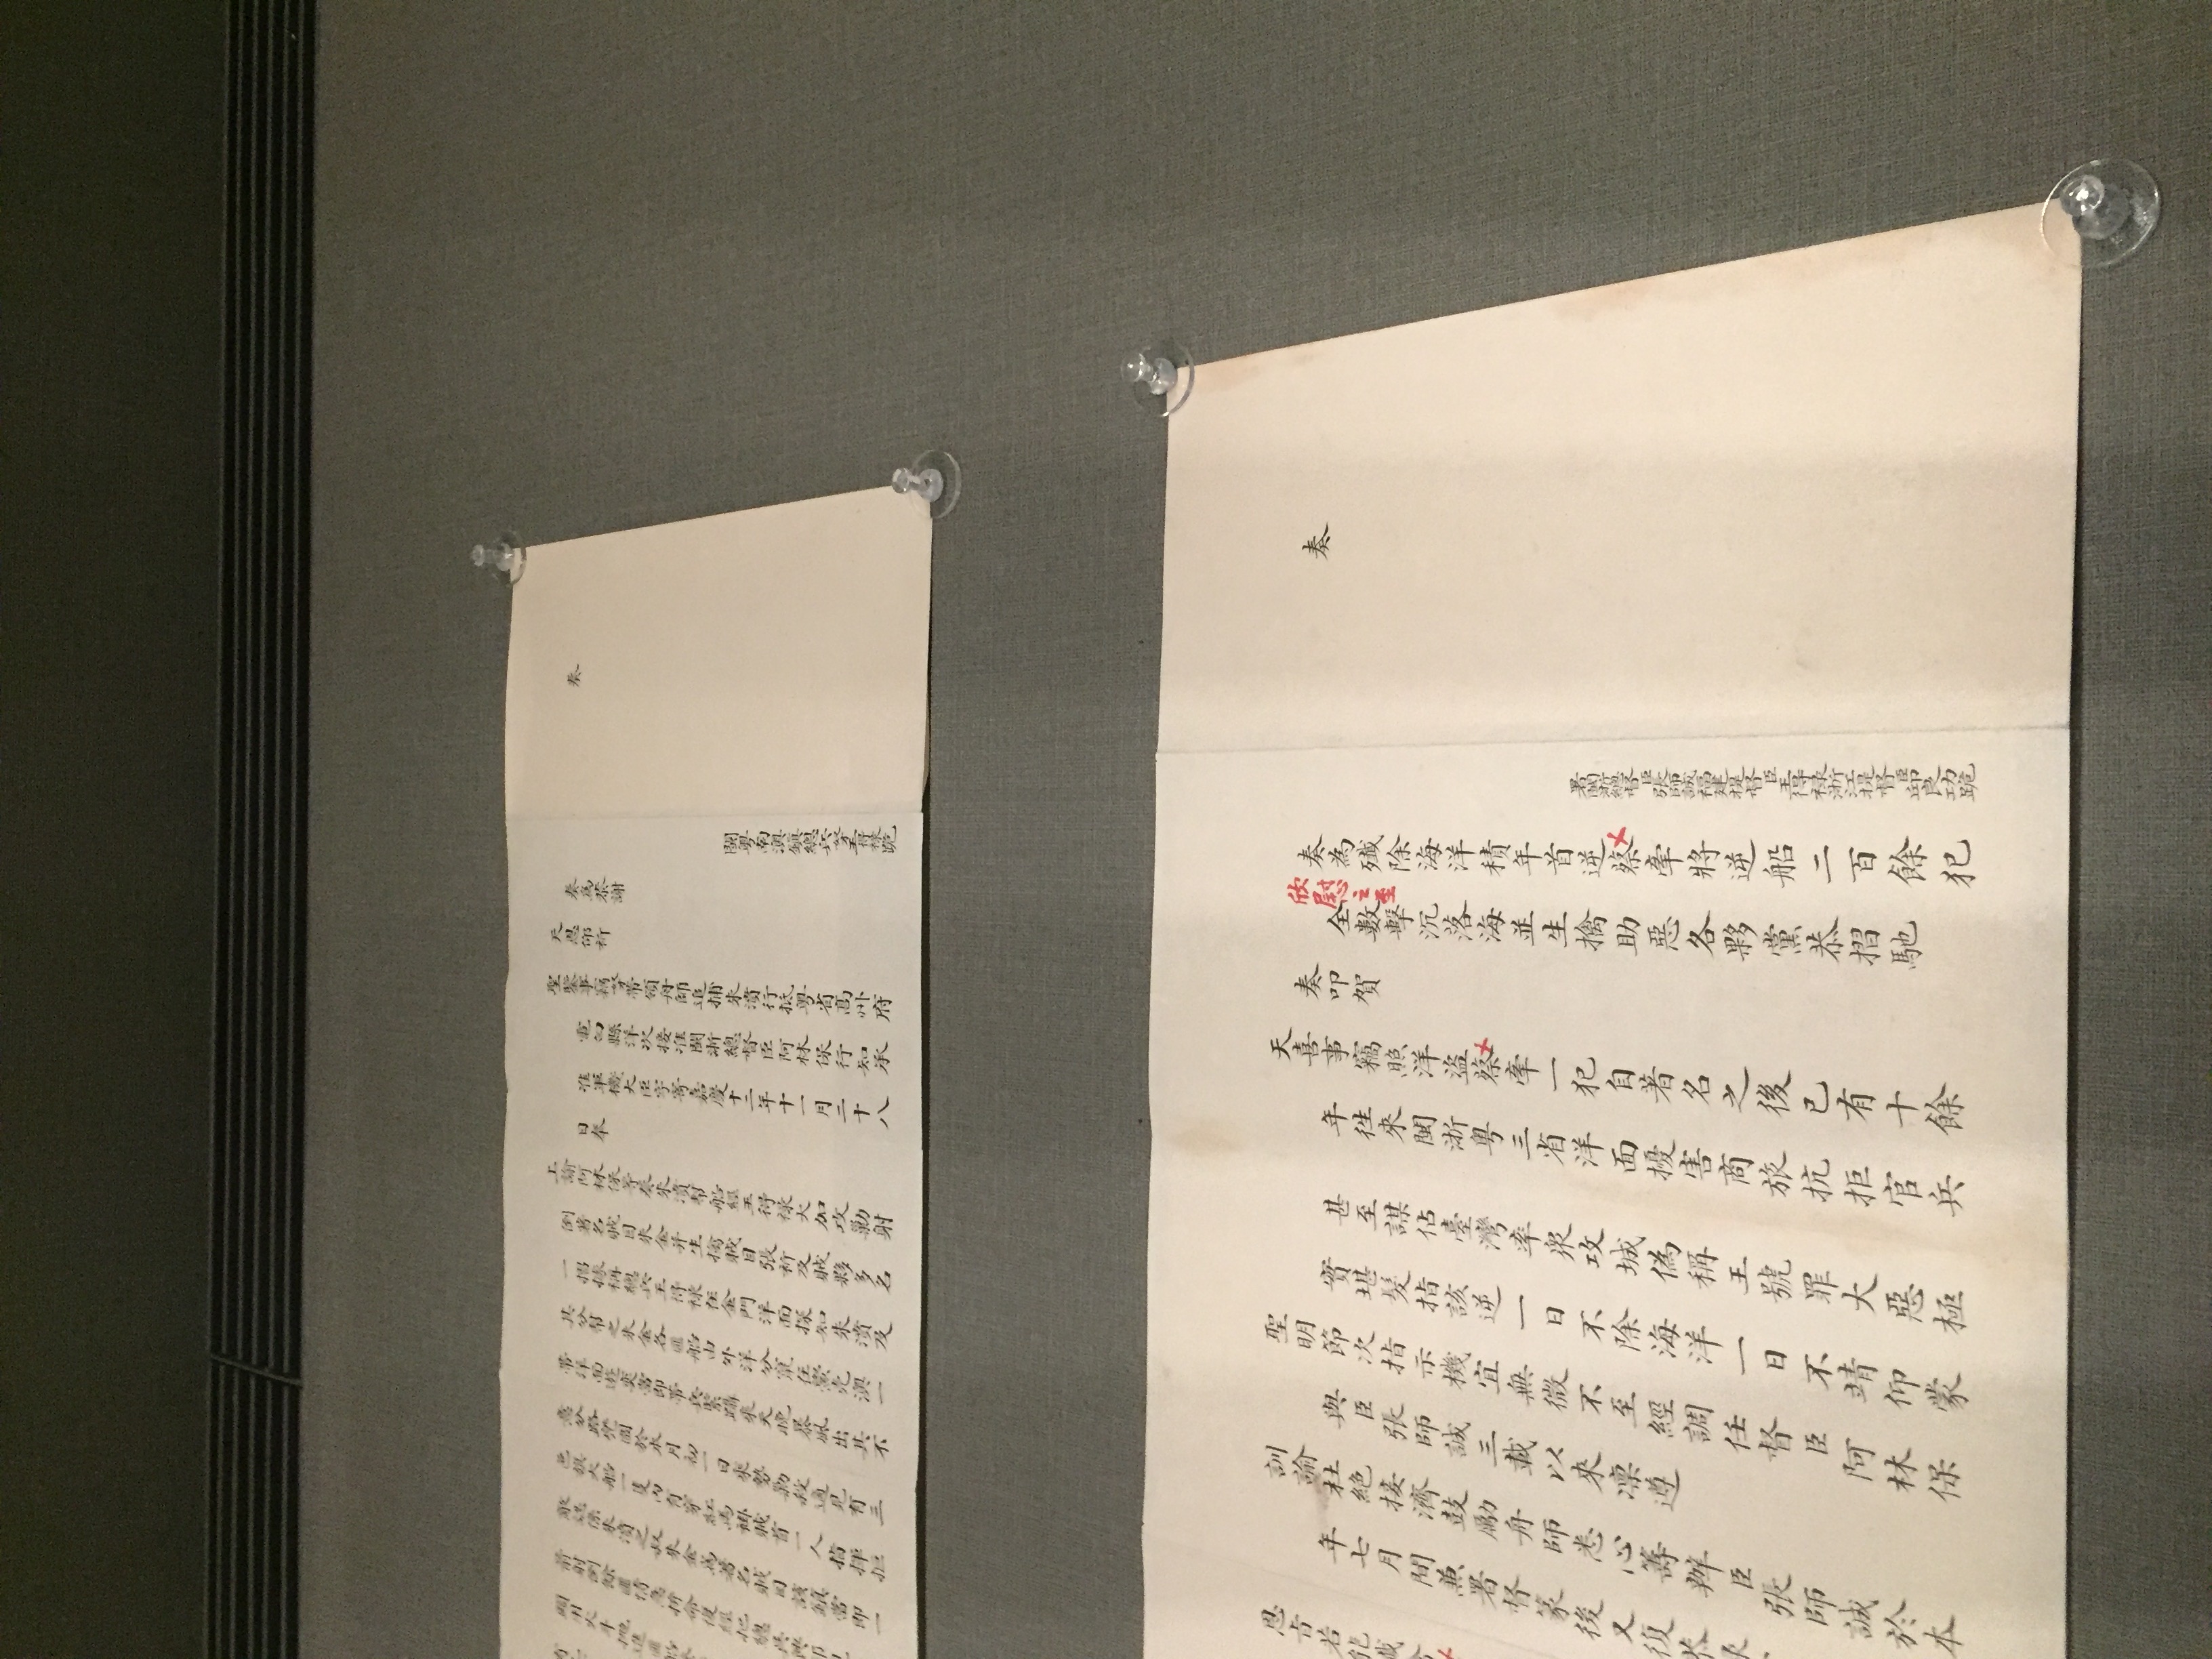 奏
閩粵南澳鎮總兵奴才王得祿跪
奏爲恭謝
天恩仰祈
聖鑒事竊奴才帶領舟師追捕朱濆行抵粵省高州府
電白縣洋次接准閩浙總督臣阿林保行知承
准軍機大臣字寄嘉慶十二年十一月二十八
日奉
上諭阿林保等奏朱濆幫船經王得祿大加攻勦射
倒著名賊目朱金并生擒賊目張祈及賊夥多名
一摺據稱總兵王得祿在金門洋面探知朱濆及
其分幫之朱金各匪船由外洋分竄在鱟壳澳一
帶洋面遊奕當即帶兵緊躡乘天晚暴風出其不
意分路兜圍於本月初一日乘勢勦殺適見有三
色旗大船一隻內有穿紅馬褂賊首一人指揮拒
敵認係朱濆之叔朱金爲著名賊目該鎮當即一
箭射倒餘匪情急拚命復經把總吳興邦
用火斗拋進匪船
奏
署閩浙總督臣張師誠福建提督臣王得祿浙江提督臣邱良功跪
奏為殲除海洋積年首逆蔡牽將逆船二百餘犯
欣慰之至
全數擊沉落海並生擒助惡各夥黨恭摺馳
奏叩賀
天喜事竊照洋盜蔡牽一犯自著名之後已有十餘
年往來閩浙粵三省洋面擾害商旅抗拒官兵
甚至謀佔臺灣率衆攻城偽稱王號罪大惡極
實堪髮指該逆一日不除海洋一日不靖仰蒙
聖明節次指示機宜無微不至經調任督臣阿林保
與臣張師誠三載以來凜遵
訓諭杜絕接濟鼓勵舟師悉心籌辦臣張師誠於本
年七月間兼署督篆後又復恭
恩旨若能殲